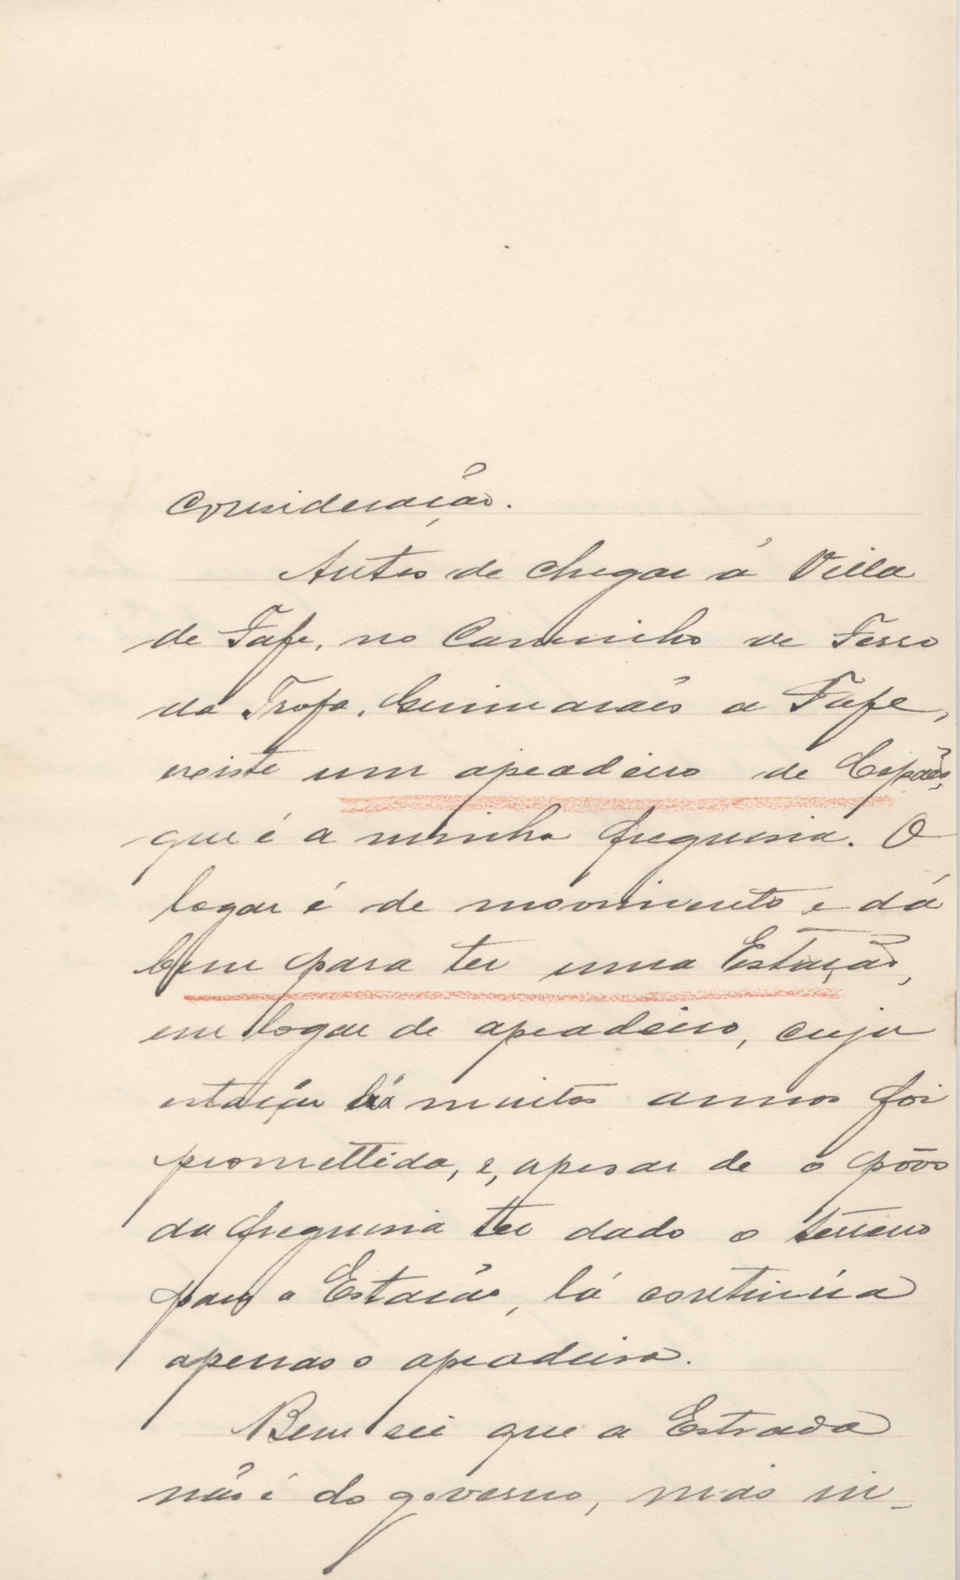 consideração.
Antes de chegar á Villa
de Fafe, no Caminho de Ferro
da Trofa, Guimarães a Fafe,
existe um apeadeiro de Cepães,
que é a minha freguesia. O
logar é de movimento e dá
bem para ter uma Estação,
em logar de apeadeiro, cuja
estação há muitos annos foi
promettida, e, apesar de o pôvo
da freguesia ter dado o terreno
para a Estação, lá continúa
apenas o apeadeiro.
Bem sei que a Estrada
não é do governo, mas in-